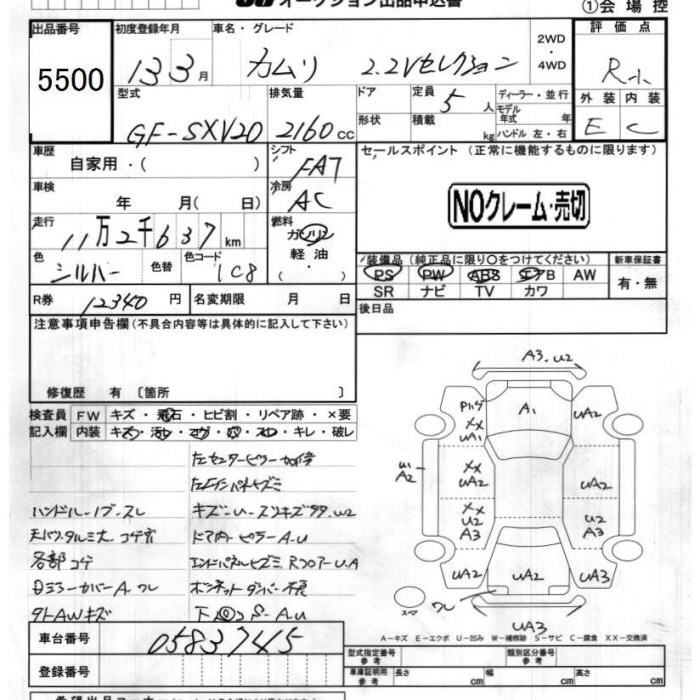 オークション出品申込書
①会場控
出品番号
5500
初度登録年月
13 3月
車名・グレード
カムリ 2.2Vセレクション
2WD・4WD
評価点
R小
外装 内装
E C
型式
GF-SXV20
排気量
2160cc
ドア
形状
定員 5人
積載 kg
ディーラー・並行
モデル年式 年
ハンドル 左・右
車歴
自家用・( )
シフト
FAT
セールスポイント (正常に機能するものに限ります)
NOクレーム・売切
車検
年 月( 日)
冷房
AC
走行
11万2千637km
燃料
ガソリン
軽油
・( )
色
シルバー
色替
色コード
1C8
装備品(純正品に限り○をつけてください)
PS PW ABS エアB AW
SR ナビ TV カワ
新車保証書
有・無
R券 12340円
名変期限 月 日
後日品
注意事項申告欄(不具合内容等は具体的に記入して下さい)
修復歴 有〔箇所 〕
検査員記入欄
FW キズ・飛石・ヒビ割・リペア跡・×要
内装 キズ・汚レ・コゲ・穴・スレ・キレ・破レ
左センターピラー加修
左Fインパネヒズミ
ハンドル・ノブ・スレ
天バリタルミ大 コゲ穴
各部コゲ
Dミラーカバー A ワレ
タトAWキズ
ドア内ピラーA.U
ボンネットダンパー不良
A3.U2
A1
UA2
XX
UA1
XX
UA2
XX
U2
A3
U1
A2
UA2
UA2
U2
A3
UA2
UA3
スペア
ワレ
UA3
A−キズ E−エクボ U−凹み W−補修跡 S−サビ C−腐食 XX−交換済
車台番号
0583745
登録番号
型式指定番号 参考
類別区分番号 参考
車庫証明用 参考
長さ cm 幅 cm 高さ cm